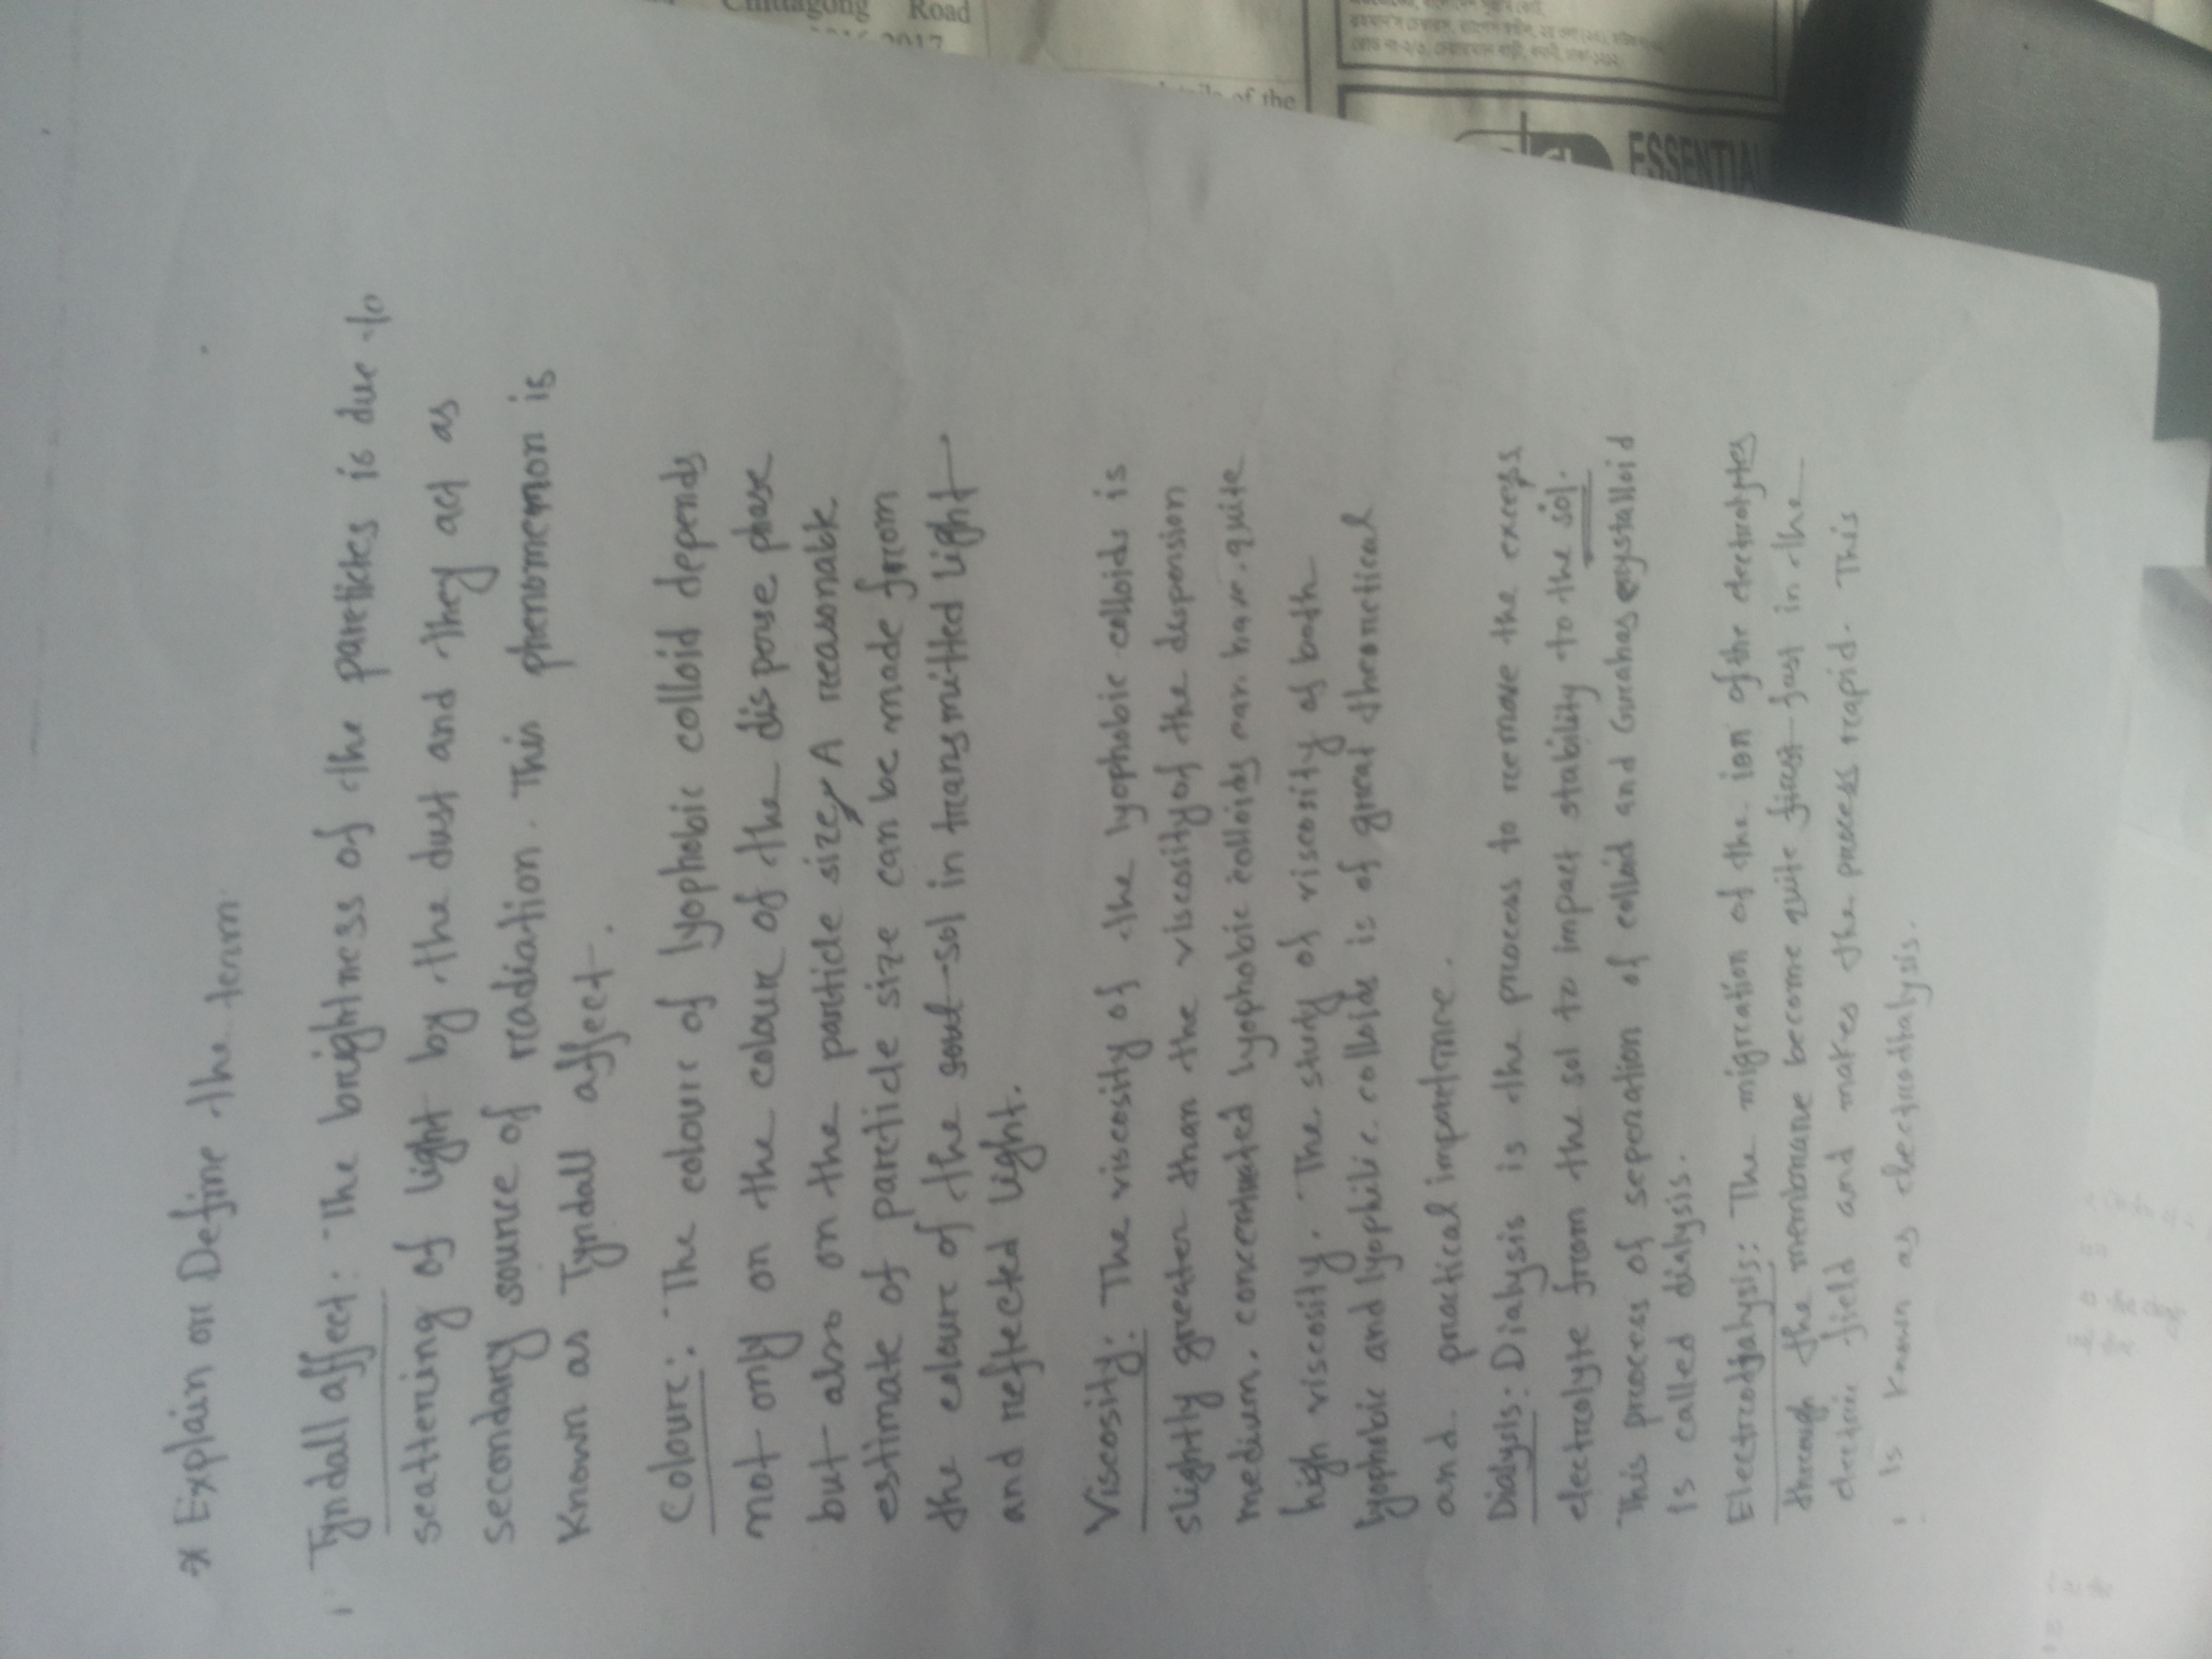 * Explain or Define the term
Tyndall affect: The brightness of the particles is due to
scattering of light by the dust and they act as
secondary source of readiation. This phenomenon is
Known as Tyndall affect.
Colour: The colour of lyophobic colloid depends
not only on the colour of the disperse phase
but also on the particle size, A reasonable
estimate of particle size can be made from
the colour of the sol in transmitted light
and reflected light.
Viscosity: The viscosity of the lyophobic colloids is
slightly greater than the viscosity of the dispersion
medium. concentrated lyophobic colloids quite
high viscosity. The study of viscosity of both
lyophobic and lyophilic colloids is of great theoretical
and practical importance.
Dialysis: Dialysis is the process to remove the excess
electrolyte from the sol to impact stability to the sol.
This process of seperation of colloid and crystalloid
is called dialysis.
Electrodialysis: The migration of the ion of the electrolytes
through the membrane become quite fast in the
electric field and makes the process rapid. This
is known as electrodialysis.
Chittagong Road
2016-2017
details of the
ESSENTIAL